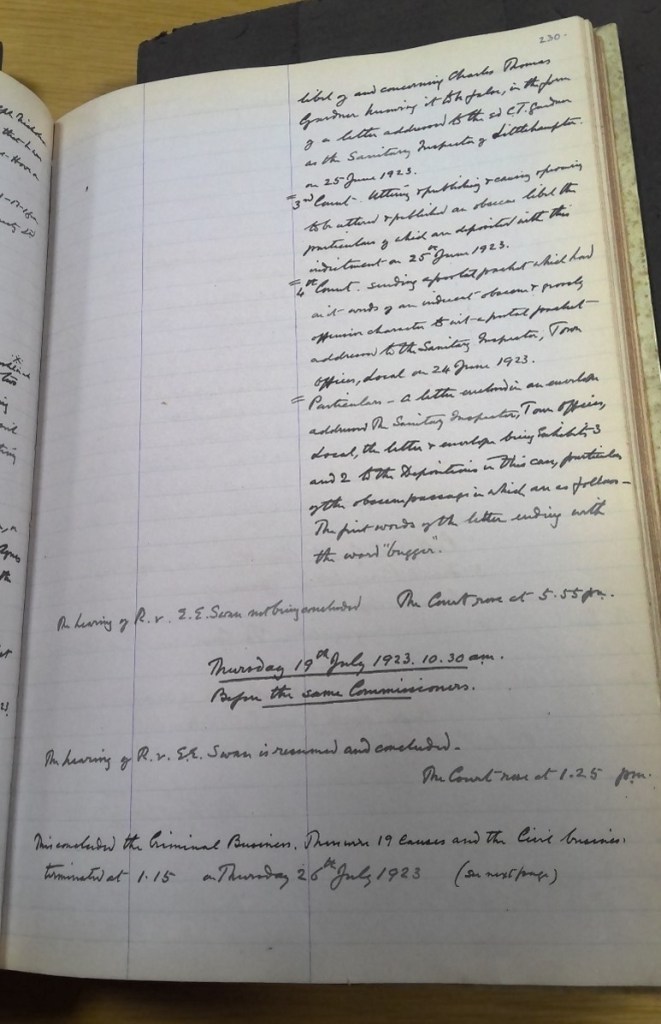 230.
libel of and concerning Charles Thomas
Gardner knowing it to be false, in the form
of a letter addressed to the sd C.T. Gardner
as the Sanitary Inspector of Littlehampton
on 25 June 1923.
= 3rd Count. Uttering & publishing & causing & procuring
to be uttered & published an obscene libel the
particulars of which are deposited with this
indictment on 25th June 1923.
= 4th Count. Sending a postal packet which had
on it words of an indecent obscene & grossly
offensive character to wit a postal packet
addressed to the Sanitary Inspector, Town
Offices, Local on 24 June 1923.
= Particulars – A letter enclosed in an envelope
addressed The Sanitary Inspector, Town Offices,
Local, the letter & envelope being Exhibits 3
and 2 to the Depositions in this case, particulars
of the obscene passage in which are as follows –
The first words of the letter ending with
the word "bugger".
The hearing of R. v. E.E. Swan not being concluded The Court rose at 5.55 pm.
Thursday 19th July 1923. 10.30 am.
Before the same Commissioners.
The hearing of R. v. E.E. Swan is resumed and concluded –
The Court rose at 1.25 pm.
This concluded the Criminal Business. There were 19 Causes and the Civil business
terminated at 1.15 on Thursday 26th July 1923 (see next page)